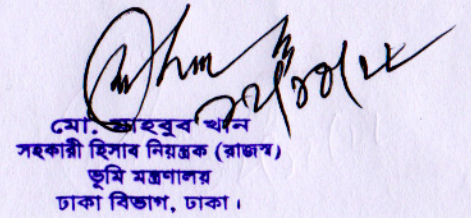 মো. মাহবুব খান
সহকারী হিসাব নিয়ন্ত্রক (রাজস্ব)
ভূমি মন্ত্রণালয়
ঢাকা বিভাগ, ঢাকা।